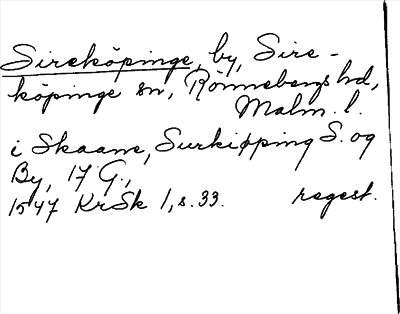 Sireköpinge, by, Sire-
köpinge sn, Rönnebergs hd,
Malm. l.
i Skaane, Surkiøpping S. og
By, 17 G.,
1547 KrSk 1, s. 33. regest.